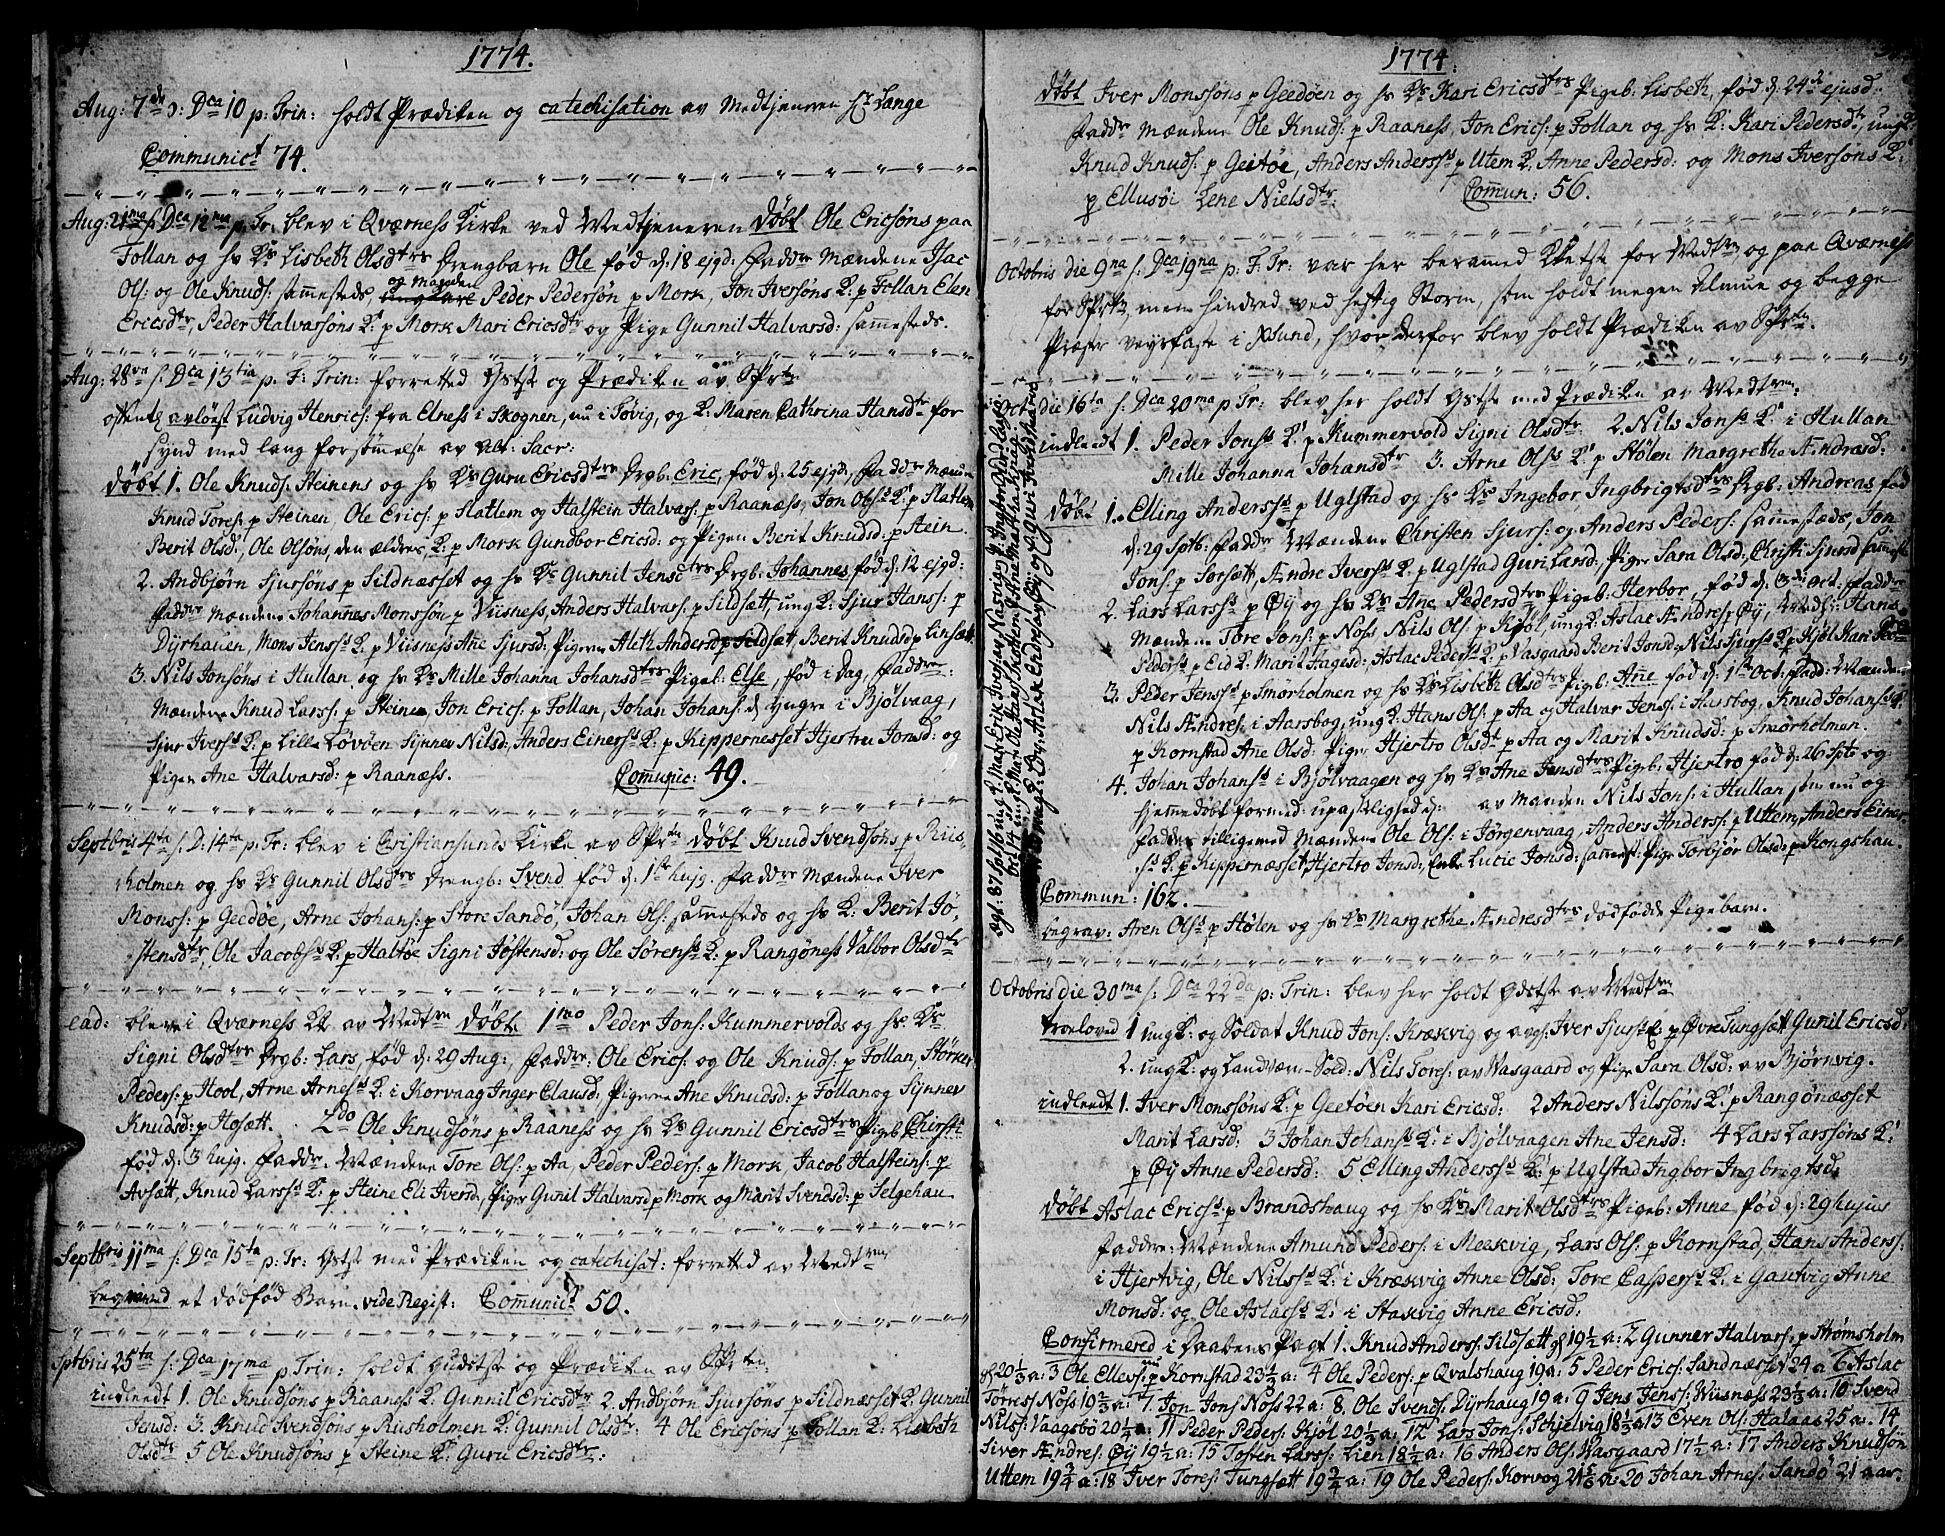 1774.
Aug: 7de D: Dca 10 p. Trin: holdt Prædiken og catechisation av Medtjeneren Hr Lange
Communict 74.
Aug: 21ma s. Dca 12ma p. Tr: blev i Qværness Kirke ved Medtjeneren døbt Ole Ericsöns paa
Follan og hs Ks Lisbeth Olsdtrs Drengbarn Ole fød d: 18 ejgd: Faddre Mændene Isac
Ols: og Ole Knuds: sammesteds, og Manden Peder Pedersøn p Mork, Jon Iversøns K: p Follan Elen
Ericsdtr, Peder Halvarsøns K: p Mork Mari Ericsdtr og Pige Gunnil Halvarsd: sammesteds.
Aug: 28va s: Dca 13tia p. F: Trin: forretted Gtst og Prædiken av SPrtn
offentl: avløst Ludvig Henrics: fra Elness i Skognen, nu i Tøvig, og K: Maren Cathrina Hansdtr for
synd med lang forsømelse av Alt: Sacr:
Døbt 1. Ole Knuds: Steinens og hs Ks Guru Ericsdtrs Drgb: Eric, fød d: 25 ejgd, Faddr Mænden
Knud Tores: p Steinen, Ole Erics: p Slatlem og Halstein Halvars: p Raaness, Jon Olss K: p Slatlem
Berit Olsd:, Ole Olsøns, den ældres K: p Mork Gundbor Ericsd: og Pigen Berit Knudsd p Stein
2. Andbjørn Sjursøns p Sildnæsset og hs Ks Gunnil Jensdtrs Drgb: Johannes fød d: 12 ejgd:
Faddre Mændene Johannes Monssøn p Viisness, Anders Halvars: p Sildsætt, ung K: Sjur Hans: p
Dÿrhauen, Mons Jenss K. p Viisness Ane Sjursd: Pigerne Aleth Andersd p Sildsætt, Berit Knudsd p Linsætt
3. Nils Jonsøns i Hullan og hs Ks Mille Johanna Johansdtrs Pigeb: Else, fød i Dag, Faddre:
Mændene Knud Larss: p Steine, Jon Erics: p Follan, Johan Johans: d yngre i Bjølvaag,
Sjur Iverss K: p Lille Løvöen Synnev Nilsd, Anders Einerss K: p Kippernesset Hjertru Jonsd: og
Pigen Ane Halvarsd: p Raanæss. Comunic: 49.
Septbris 4ta s: D: 14ta p. Tr: blev i Christiansunds Kirke av SPrtn døbt Knud Svendsøns p Riis,
holmen og hs Ks Gunnil Olsdtrs Drengb: Svend fød d: 1ste hujg. Faddre Mændene Iver
Monss: p Geedöe, Arne Johans: p Store Sandø, Johan Ols: sammesteds og hs K: Berit Jø,
stensdtr, Ole Jacobss K. p Haltøe Signi Jøstensd: og Ole Sørenss K: p Rangöness Valbor Olsdtr
ead: blev i Qværness K av Medtrn Døbt 1mo Peder Jons: Kummervolds og hs: Ks
Signi Olsdtrs Drgb: Lars, fød d: 29 Aug:, Faddre: Ole Erics: og Ole Knuds: p Follan, Størker
Peders: p Hool, Arne Arness K: i Korvaag Inger Clausd: Pigerne Ane Knudsd: p Follan og Synnev
Knudsd: p Hosætt. 2do Ole Knudsøns p Raaness og hs Ks Gunnil Ericsdtrs Pigeb Chirsti
fød d: 3 hujg. Faddre. Mændene Tore Ols: p Aa, Peder Peders: p Mork Jacob Halsteins: p
Avsætt, Knud Larss K: p Steine Eli Iversd, Piger Gunil Halvarsd p Mork og Marit Svendsd: p Selgehau
Septbris 11ma s: Dca 15ta p: Tr: Gtst med Prædiken og catechisat: forretted av Medtrn
begraved et dödfød Barn. vide Regist: Communict 50.
Sptbris 25ta s: Dca 17ma p Trin: holdt Gudstst og Prædiken av SPrtn
indleedt 1. Ole Knudsöns p Raaness K. Gunnil Ericsdtr 2. Andbjørn Sjursöns p Sildnæsset K. Gunnil
Jensd: 3. Knud Svendsøns p Riisholmen K: Gunnil Olsdtr: 4 Ole Ericsöns p Follan K: Lisbeth
Olsdtr 5 Ole Knudsöns p Steine K: Guru Ericsdtr:
1774.
døbt Iver Monssøns p Geedöen og hs Ks Kari Ericsdtrs Pigeb: Lisbeth, fød d: 24de ejusd:
Faddre Mændene Ole Knuds: p Raaness, Jon Erics: p Follan og hs K: Kari Pedersdtr, ung K
Knud Knuds: p Geitöe, Anders Anderss p Utem K. Anne Pedersd: og Mons Iversøns K:
p Ellusöi Lene Nielsdtr: Comun: 56.
Octobris die 9na s: Dca 19na p: F. Tr: var her berammed for Medtrn og paa Qværness
for SPrtn, men hindred ved heftig Storm, som holdt megen Almue og begge
Præster veyrfaste i Xsund, hvor derfor blev holdt Prædiken av SPrtn.
Oct: die 16ta s: Dca 20ma p Tr: blev her holdt Gtst med Prædiken av Medtrn:
indleedt 1. Peder Jonss K: p Kummervold Signi Olsdtr. 2. Nils Jonss K: i Hullan
Mille Johanna Johansdtr 3. Arne Olss K: p Stölen Margretha Ændresd:
Døbt 1. Elling Anderss p Uglstad og hs Ks Ingebor Ingbrigtsdtrs Drgb: Andreas fød
d: 29 Sptb: Faddre Mændene Christen Sjurs: og Anders Peders: sammesteds, Jon
Jons: p Sorsætt, Ændre Iverss K. p Uglstad Guri Larsd, Piger Sara Olsd, Christi Sjursd samest:
2. Lars Larss p Øÿ og hs Ks Ane Pedersdtrs Pigeb: Herbor, fød d: 3di Oct: Faddre
Mændene Tore Jons: p Noss Nils Ols: p Kjöl, ung K: Aslac Ændres: p Øÿ, Hans
Peders: p Eid K: Marit Hagesd: Aslac Pederss K: p Vasgaard Berit Jonsd, Nils Sjurss K: p Kjöl Kari
3. Peder Jenss p Smørholmen og hs Ks Lisbeth Olsdtrs Pigeb: Ane fød d: 1ste Oct: Fadd: Mændene
Nils Ændres: i Aarsbog, ung K: Hans Ols: p Aa og Halvar Jens: i Aarsbog, Knud Johanss K
p Kornstad Ane Olsd: Piger Hjertro Olsdt p Aa og Marit Knudsd: p Smörholmen.
4. Johan Johanss i Bjölvaagen og hs Ks Ane Jensdtrs Pigeb: Hjertro fød d: 26 Sptb og
hjemedøbt formed: upaslighed d: av Manden Nils Jons: i Hullan som nu og
Fadder tilligemed Mændene Ole Ols: i Jörgenvaag, Anders Anders: p Uttem, Anders Einer,
ss K: p Kippernæsset Hjertro Jonsd, Enke Lucie Jonsd: samest: Pige Torbjør Olsd: p Kongshau.
Commun: 162.
begrav: Aren Olss p Stölen og hs Ks Margrethe Ændresdtrs dødfødde Pigebarn.
Octobris die 30ma s: Dca 22da p: Trin: blev her holdt Gdstst av Medtrn
Troeloved 1 ung K: og Soldat Knud Jons: Kræwvig og avgs: Iver Sjurss E: p Øvre Tungsætt Gunil Ericsd:
2. ung K: og Landværn-Sold: Nils Tores: av Vasgaard og Pige Sara Olsd: av Bjørnvig.
indleedt 1. Iver Monssøns K: p Geetöen Kari Ericsd: 2 Anders Nilssøns K: p Rangönæsset
Marit Larsd: 3 Johan Johanss K: i Bjölvaagen Ane Jensd: 4 Lars Larssøns K:
p Øÿ Anne Pedersd: 5 Elling Anderss K: p Uglstad Ingbor Ingbrigtsd:
Døbt Aslac Ericss p Brandshaug og hs Ks Marit Olsdtrs Pigeb: Anne fød d: 29 hujus
Faddre: Mændene Amund Peders: i Meekvig, Lars Ols: p Kornstad, Hans Anders:
i Hjertvig, Ole Nilss K: i Kræwvig Anne Olsd: Tore Caspers K: i Gautvig Anne
Monsd: og Ole Aslacs K: i Stakvig Anne Ericsd:
Confirmered i Daabens Pagt 1. Knud Anders: Sildsett 19½ a: 2 Gunner Halvars: p Strømsholm
20⅓ a: 3 Ole Ellevs: p Kornstad 23¼ a: 4 Ole Peders: p Qvalshaug 19a: 5 Peder Erics: Sandnæss 24 a 6 Aslac
Tøres: Noss 19⅔ a: 7. Jon Jons Noss 22 a: 8. Ole Svends: Dÿrhaug 19 a: 9 Jens Jens: Viisnæss 23⅓ a: 10 Svend
Nils: Vaagsbø 20¼ a: 11 Peder Peders: Kjöl 20⅓ a: 12 Lars Jons: Schjelvig 18⅓ a 13 Even Ols: Halaas 25 a: 14
Siver Ændres: Øÿ 19½ a: 15 Tosten Larss: Lien 18½ a: 16 Anders Ols: Vasgaard 17½ a: 17 Anders Knudsøn
Uttem 19¼ a: 18 Iver Tores: Tungsætt 19¾ a: 19 Ole Peders: Korvog 21⅚ a: 20 Johan Arnes: Sandö 21 aar.